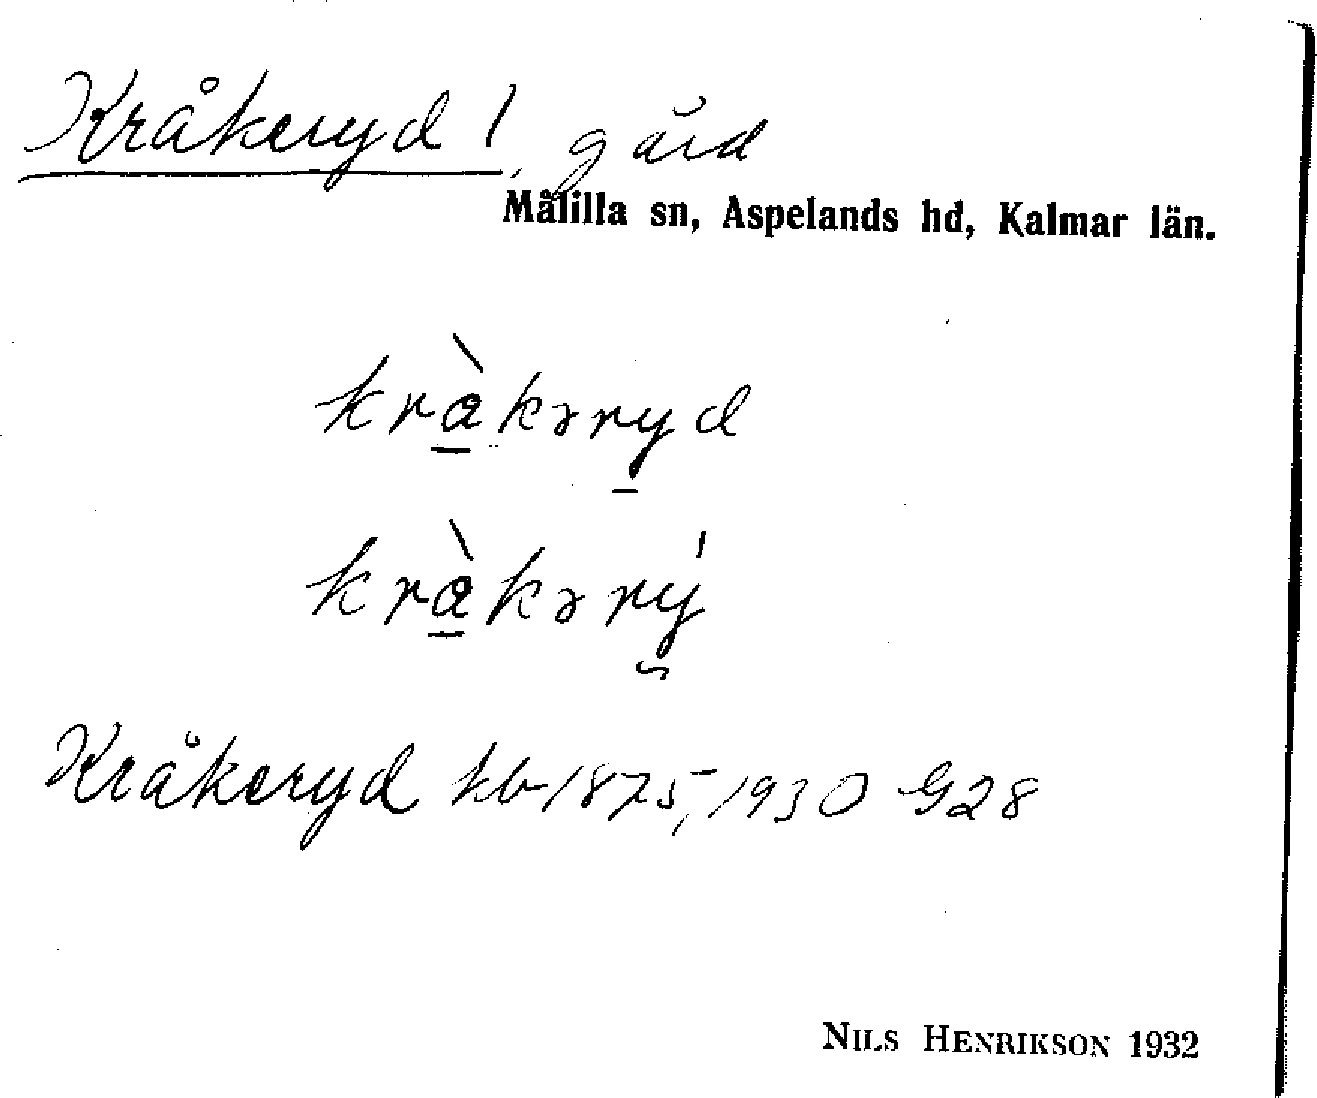 Kråkeryd 1, gård
Målilla sn, Aspelands hd, Kalmar län.
kràkəryd
kràkərý
Kråkeryd kb 1875, 1930 G28
NILS HENRIKSON 1932